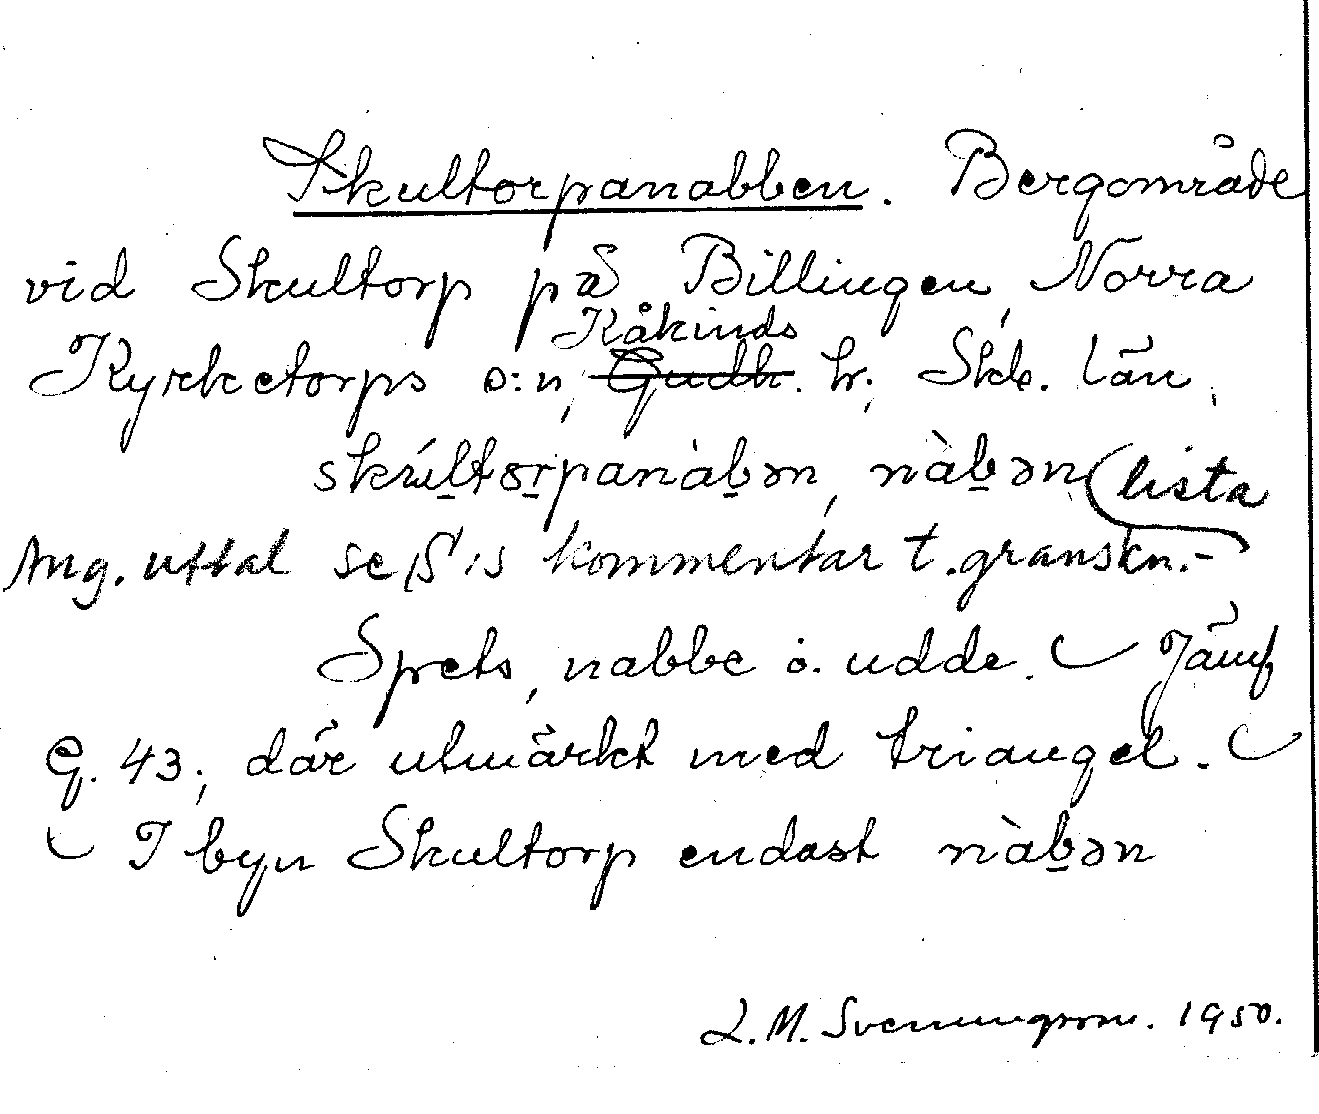 Skultorpanabben. Bergområde
vid Skultorp på Billingen, Norra
Kåkinds
Kyrketorps s:n, Gudh. hr; Skb. län.
skúltorpanàbən, nàbən (lista
Ang. uttal se S's kommentar t. granskn.-
Spets, nabbe o. udde. Jämf
G. 43, där utmärkt med triangel.
I byn Skultorp endast nàbən
L.M. Svenungsson. 1950.